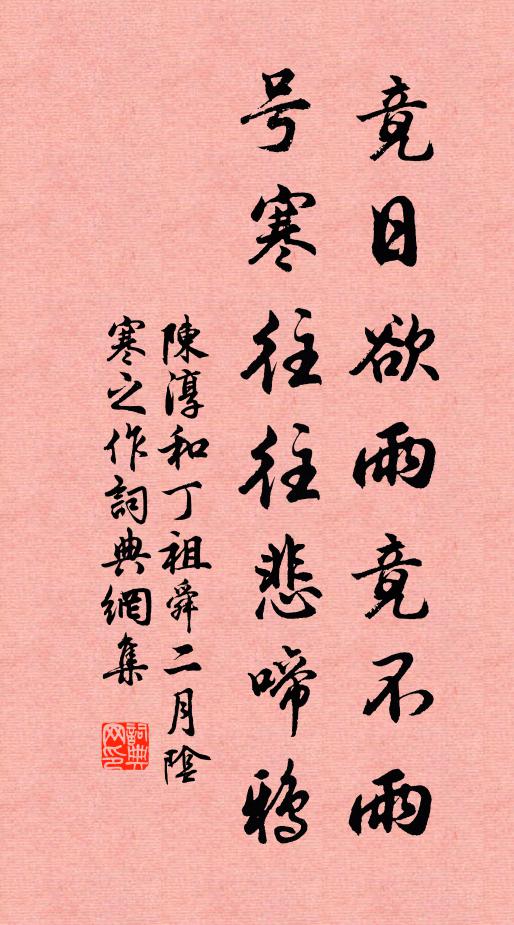 竟日欲雨竟不雨
号寒往往悲啼鴉
陳淳和丁祖舜二月陰
寒之作詞典網集
詞典
网印